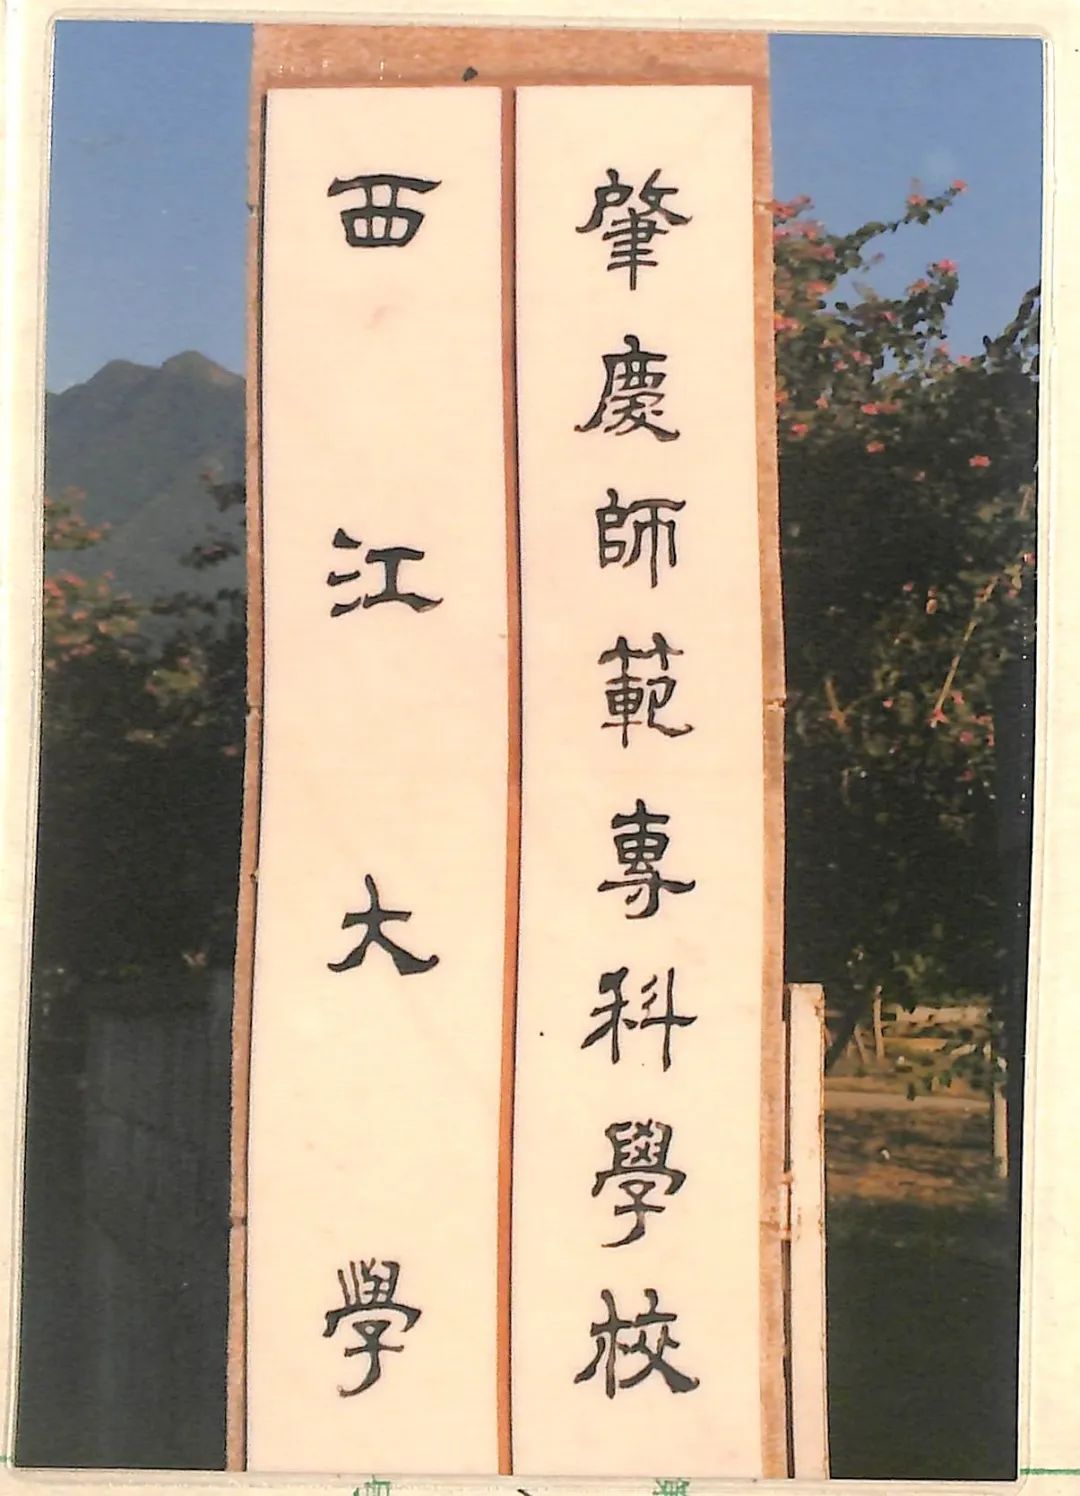 肇慶師範專科學校
西江大學